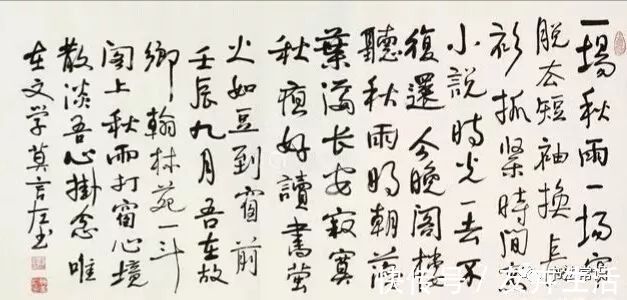 一場秋雨一場寒
脱去短袖換長
衫抓緊時間寫
小説時光一去不
復還今晚閣樓
聽秋雨明朝落
葉滿長安寂寞
秋 好讀書螢
火如豆到窗前
壬辰九月吾在故
鄉翰林苑一斗
閣上秋雨打窗心境
散淡吾心掛念唯
在文学莫言左书
快传号 生活